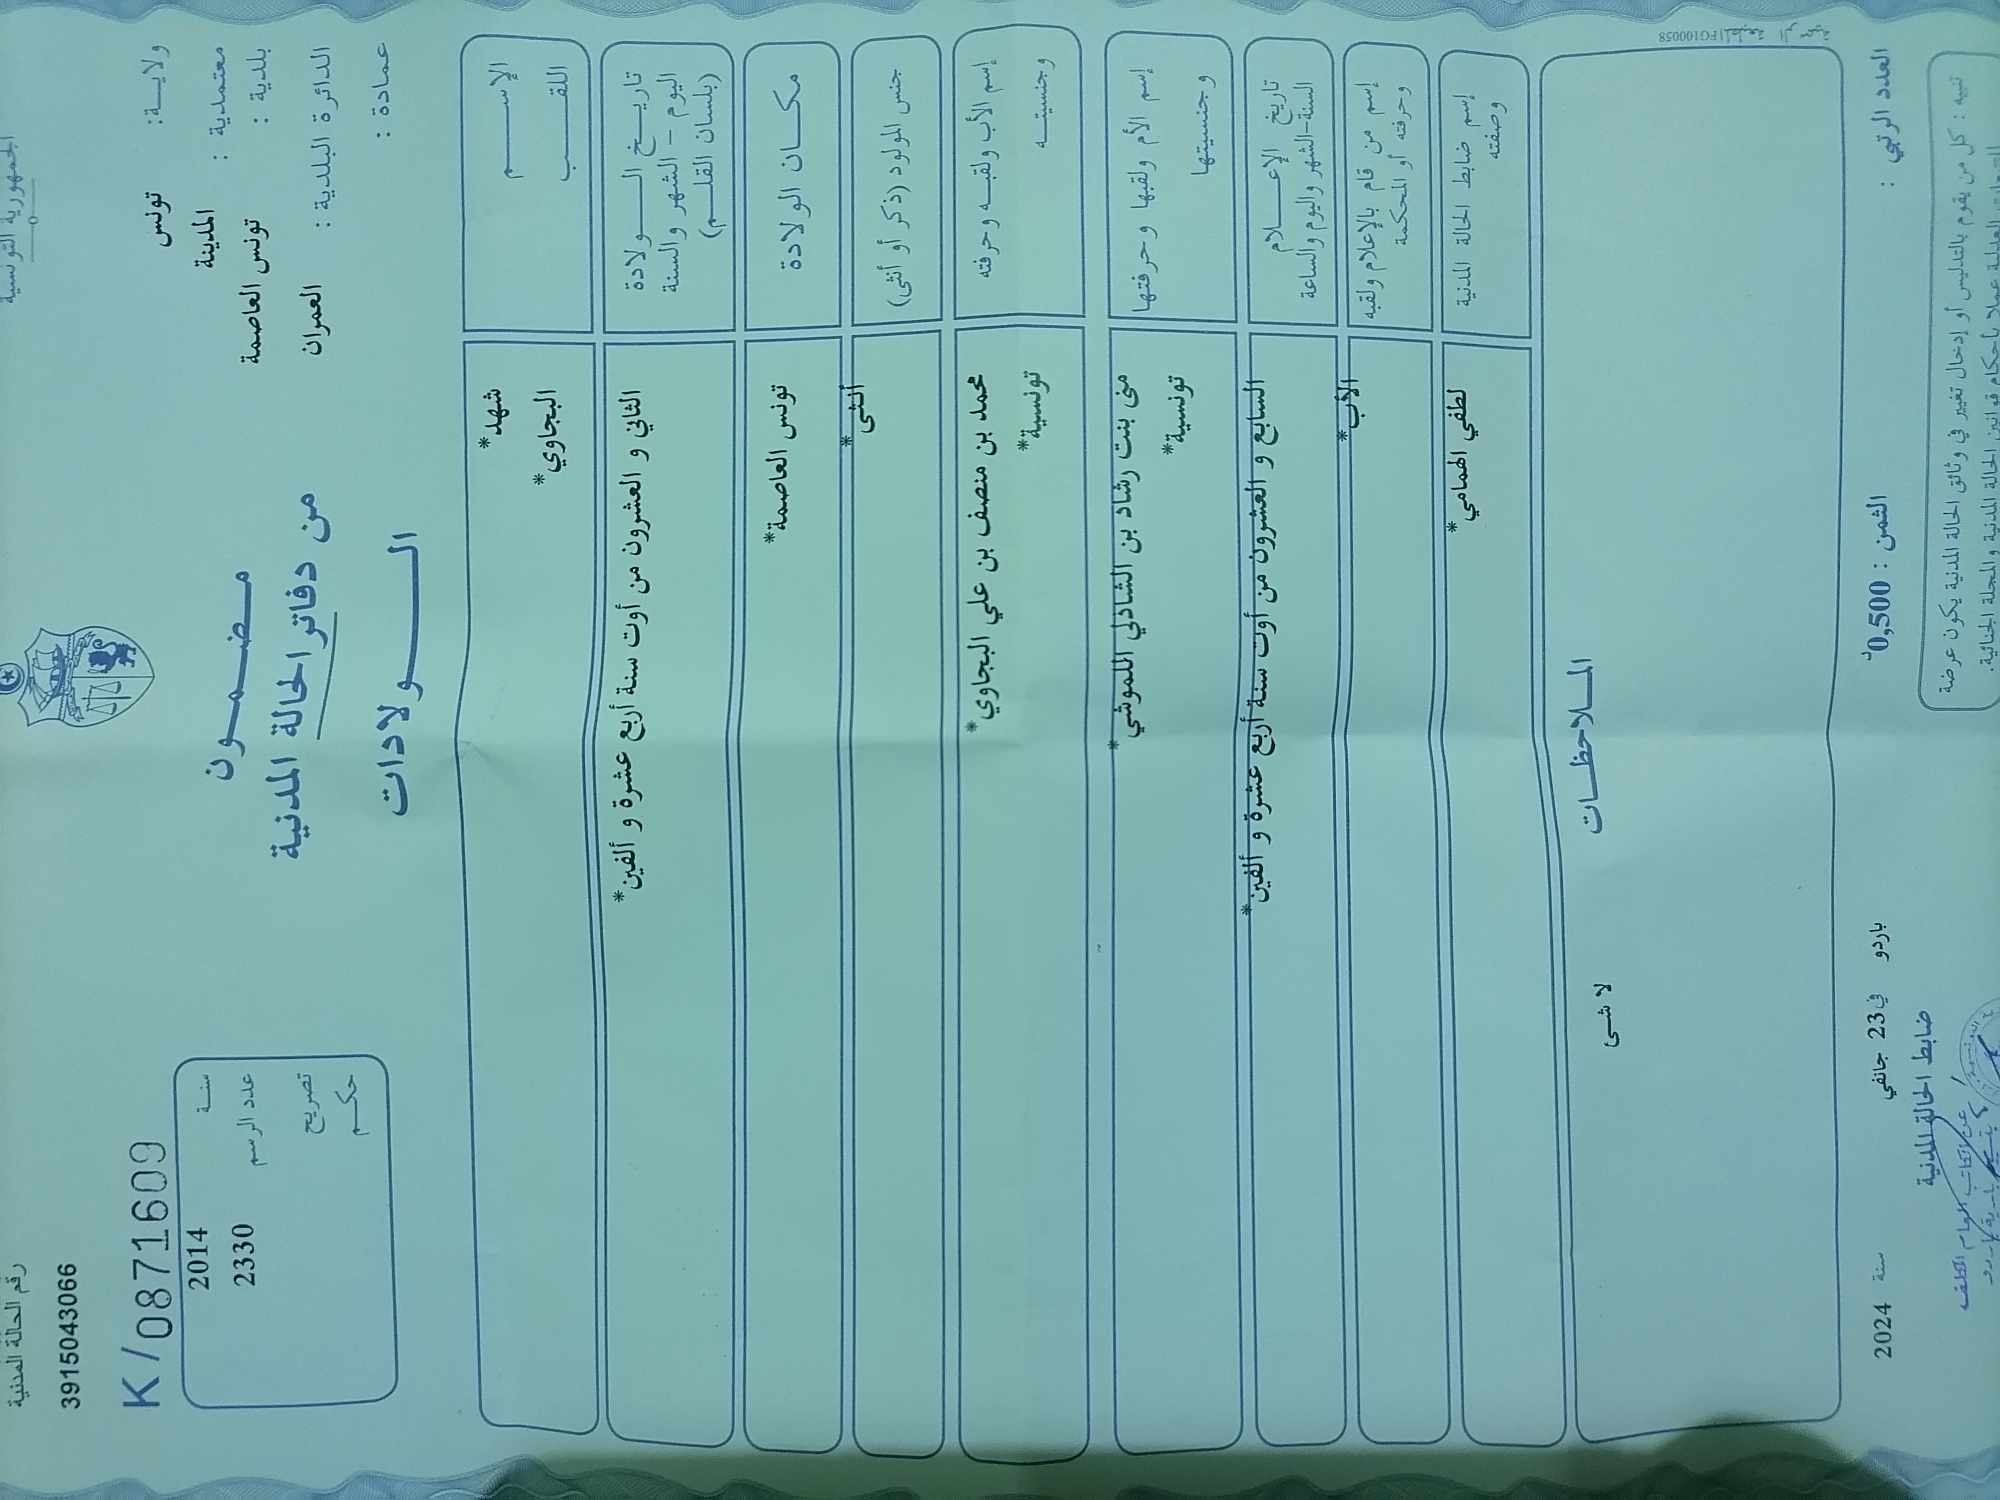 الجمهورية التونسية
رقم الحالة المدنية
3915043066
K/0871609
ولايـــة: تونس
معتمدية : المدينة
بلدية : تونس العاصمة
الدائرة البلدية : العمران
عمادة :
مـضـمــون
من دفاتر الحالة المدنية
الــــولادات
سنــة 2014
عدد الرسم 2330
تصريح
حكــم
الإســـــم شهد*
اللقــــب البجاوي*
تاريــــخ الـــــولادة الثاني و العشرون من أوت سنة أربع عشرة و ألفين*
اليوم - الشهر والسنة
(بلسان القلـــم)
مكـــان الولادة تونس العاصمة*
جنس المولود (ذكر أو أنثى) أنثى*
إسم الأب ولقبـــه وحرفته محمد بن منصف بن علي البجاوي*
وجنسيتــه تونسية*
إسم الأم ولقبها وحرفتها منى بنت رشاد بن الشاذلي اللموشي*
وجنسيتها تونسية*
تاريخ الإعـــلام السابع و العشرون من أوت سنة أربع عشرة و ألفين*
السنة-الشهر واليوم والساعة
إسم من قام بالإعلام ولقبه الأب*
وحرفته أو المحكمة
إسم ضابط الحالة المدنية لطفي الهمامي*
وصفته
المــلاحظــات
لا شئ
المطبعة الرسمية FG100058
العدد الرتبي :
الثمن : 0,500د
باردو في 23 جانفي سنة 2024
ضابط الحالة المدنية
عن الكاتب العام المكلف
تنبيه : كل من يقوم بالتدليس أو إدخال تغيير في وثائق الحالة المدنية يكون عرضة
العدلية عملا بأحكام قوانين الحالة المدنية والمجلة الجنائية.